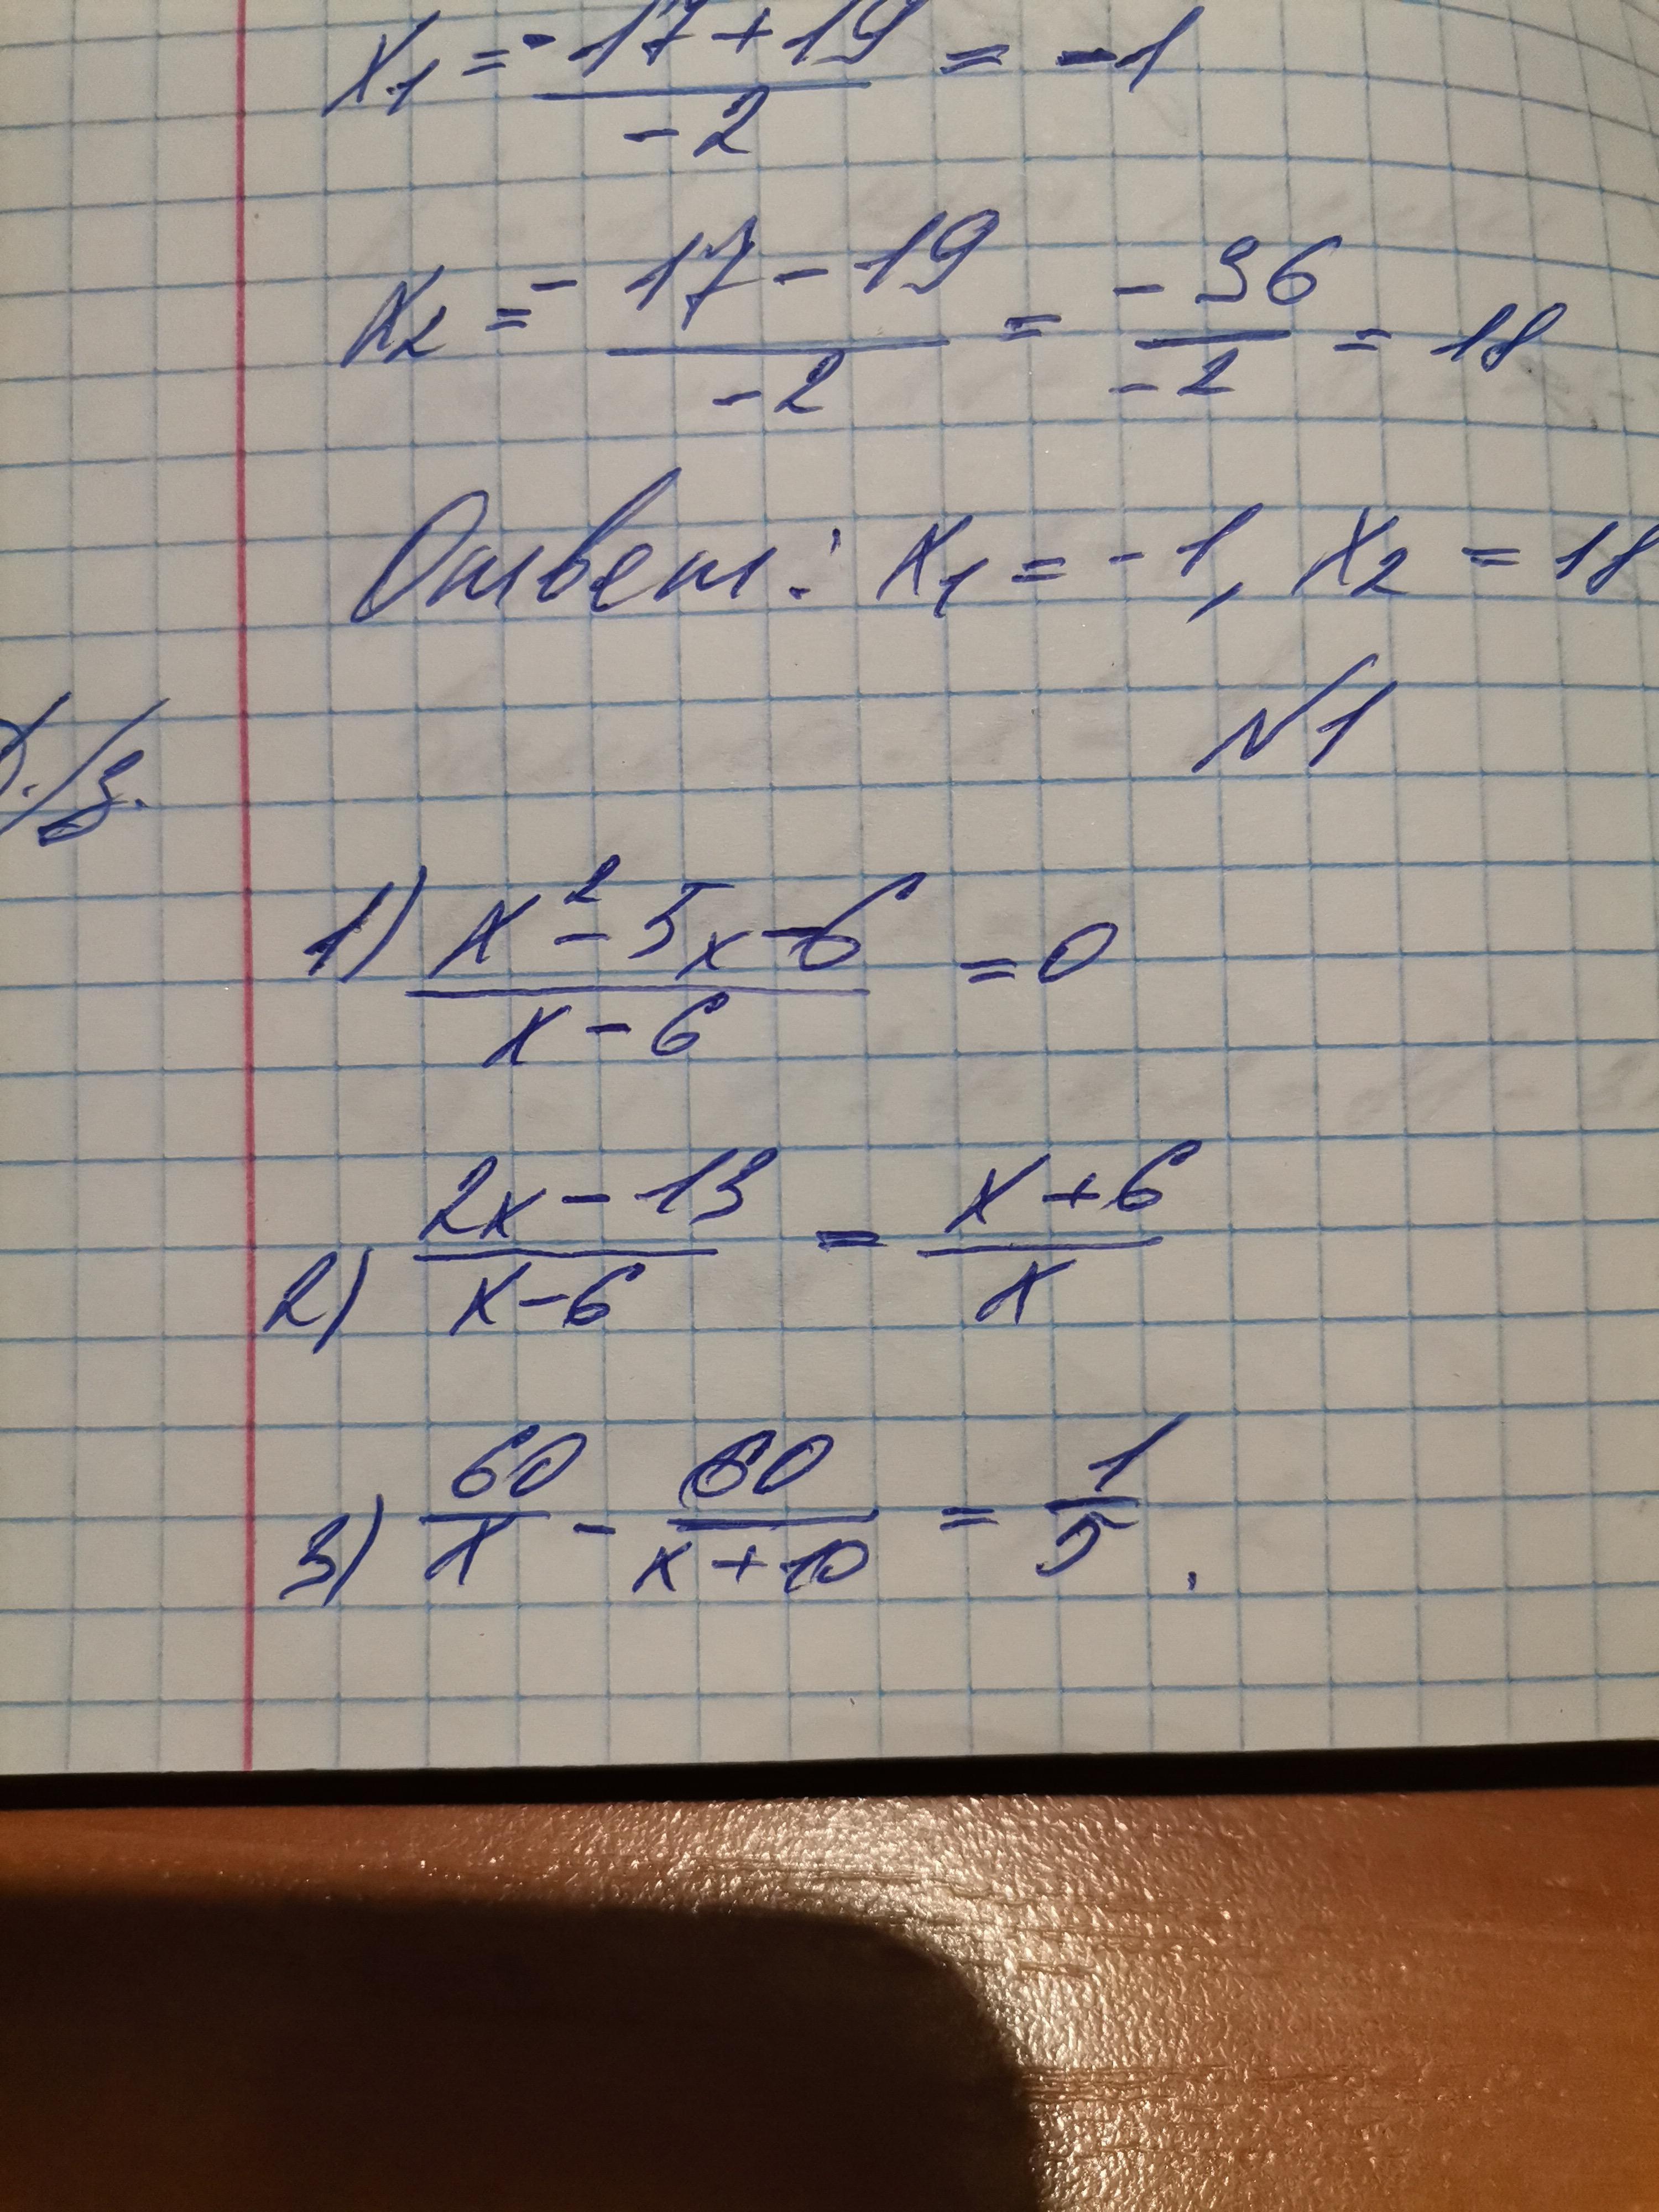 x₁ = -17+19/-2 = -1
x₂ = -17-19/-2 = -36/-2 = 18
Ответ: x₁ = -1, x₂ = 18
№1
Д./з.
1) x²-5x-6/x-6 = 0
2) 2x-13/x-6 = x+6/x
3) 60/x - 60/x+10 = 1/5.